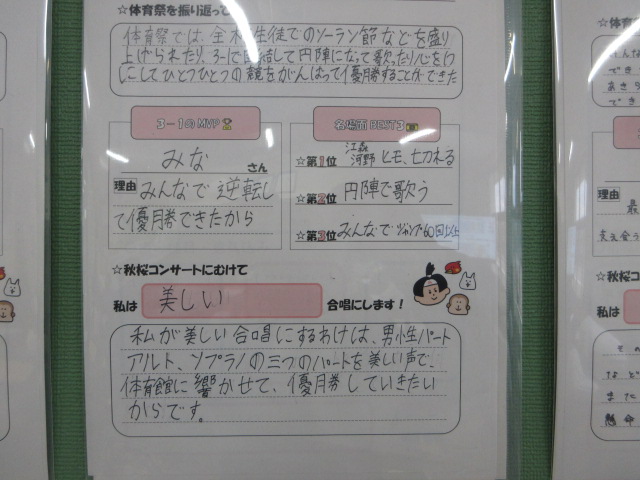 ☆体育祭を振り返って
体育祭では、全校生徒でのソーラン節などを盛り
上げられたり、3-1で団結して円陣になって歌ったり心を1つ
にしてひとつひとつの競をがんばって優勝することができた
3-1のMVP
みな さん
理由 みんなで逆転し
て優勝できたから
名場面BEST3
☆第1位 江森 河野 ヒモ、七刀れる
☆第2位 円陣で歌う
☆第3位 みんなでジャンプ60回以上
☆秋桜コンサートにむけて
私は 美しい 合唱にします！
私が美しい合唱にするわけは、男性パート
アルト、ソプラノの三つのパートを美しい声で、
体育館に響かせて、優勝していきたい
からです。
理由
☆秋桜コ
私は